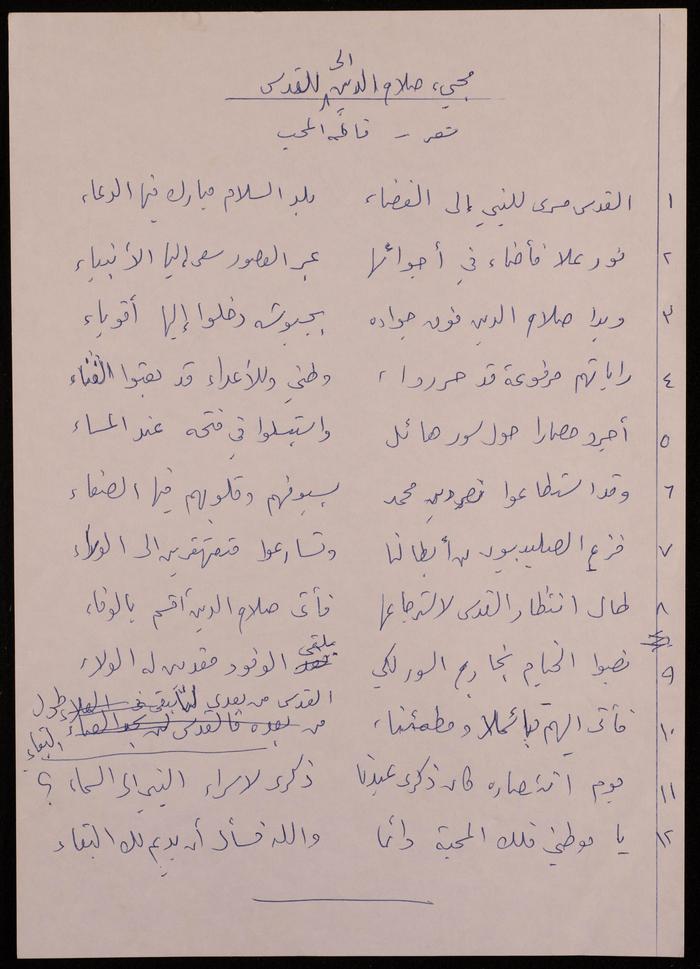 مجيء صلاح الدين إلى القدس
شعر - فاطمة المحب
١ القدس مسرى للنبي إلى الفضاء بلد السلام مبارك فيها الدعاء
٢ نور علا فأضاء في أجوائها عبر العصور سعى إليها الأنبياء
٣ وبدا صلاح الدين فوق جواده بجيوشه دخلوا إليها أقوياء
٤ راياتهم مرفوعة قد حرروا وطني وللأعداء قد الفناء
٥ حصارا حول سور هائل واستبسلوا في فتحه عند المساء
٦ وقد استطاعوا محمد بسيوفهم وقلوبهم فيها الصفاء
٧ فزع الصليبيون من أبطالنا وتسارعوا متقهقرين إلى الوراء
٨ طال انتظار القدس لاسترجاعها فأتى صلاح الدين أقسم بالوفاء
٩ نصبوا الخيام بخارج السور لكي يلقى الوفود مقدمين له الولاء
١٠ فأتى إليهم ومطمئنا القدس من بعدي لها طول البقاء
١١ يوم انتصاره كان ذكرى عيدنا ذكرى لإسراء النبي إلى السماء ؟
١٢ يا موطني فلك المحبة دائما والله نسأل أن يديم لك البقاء